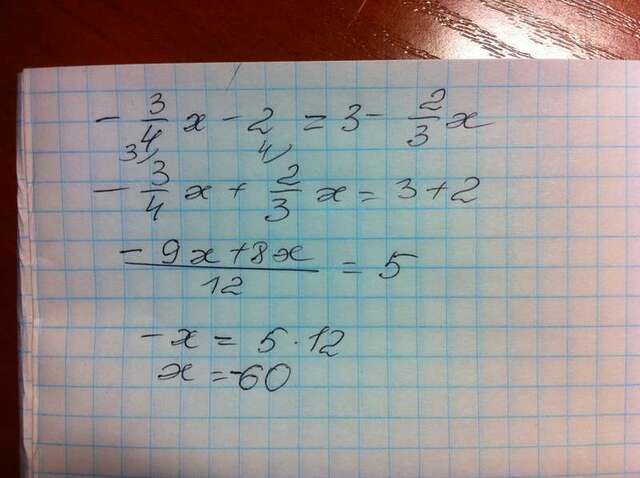 - 3/4 x - 2 = 3 - 2/3 x
3) 4)
- 3/4 x + 2/3 x = 3 + 2
(- 9x + 8x)/12 = 5
- x = 5 · 12
x = -60